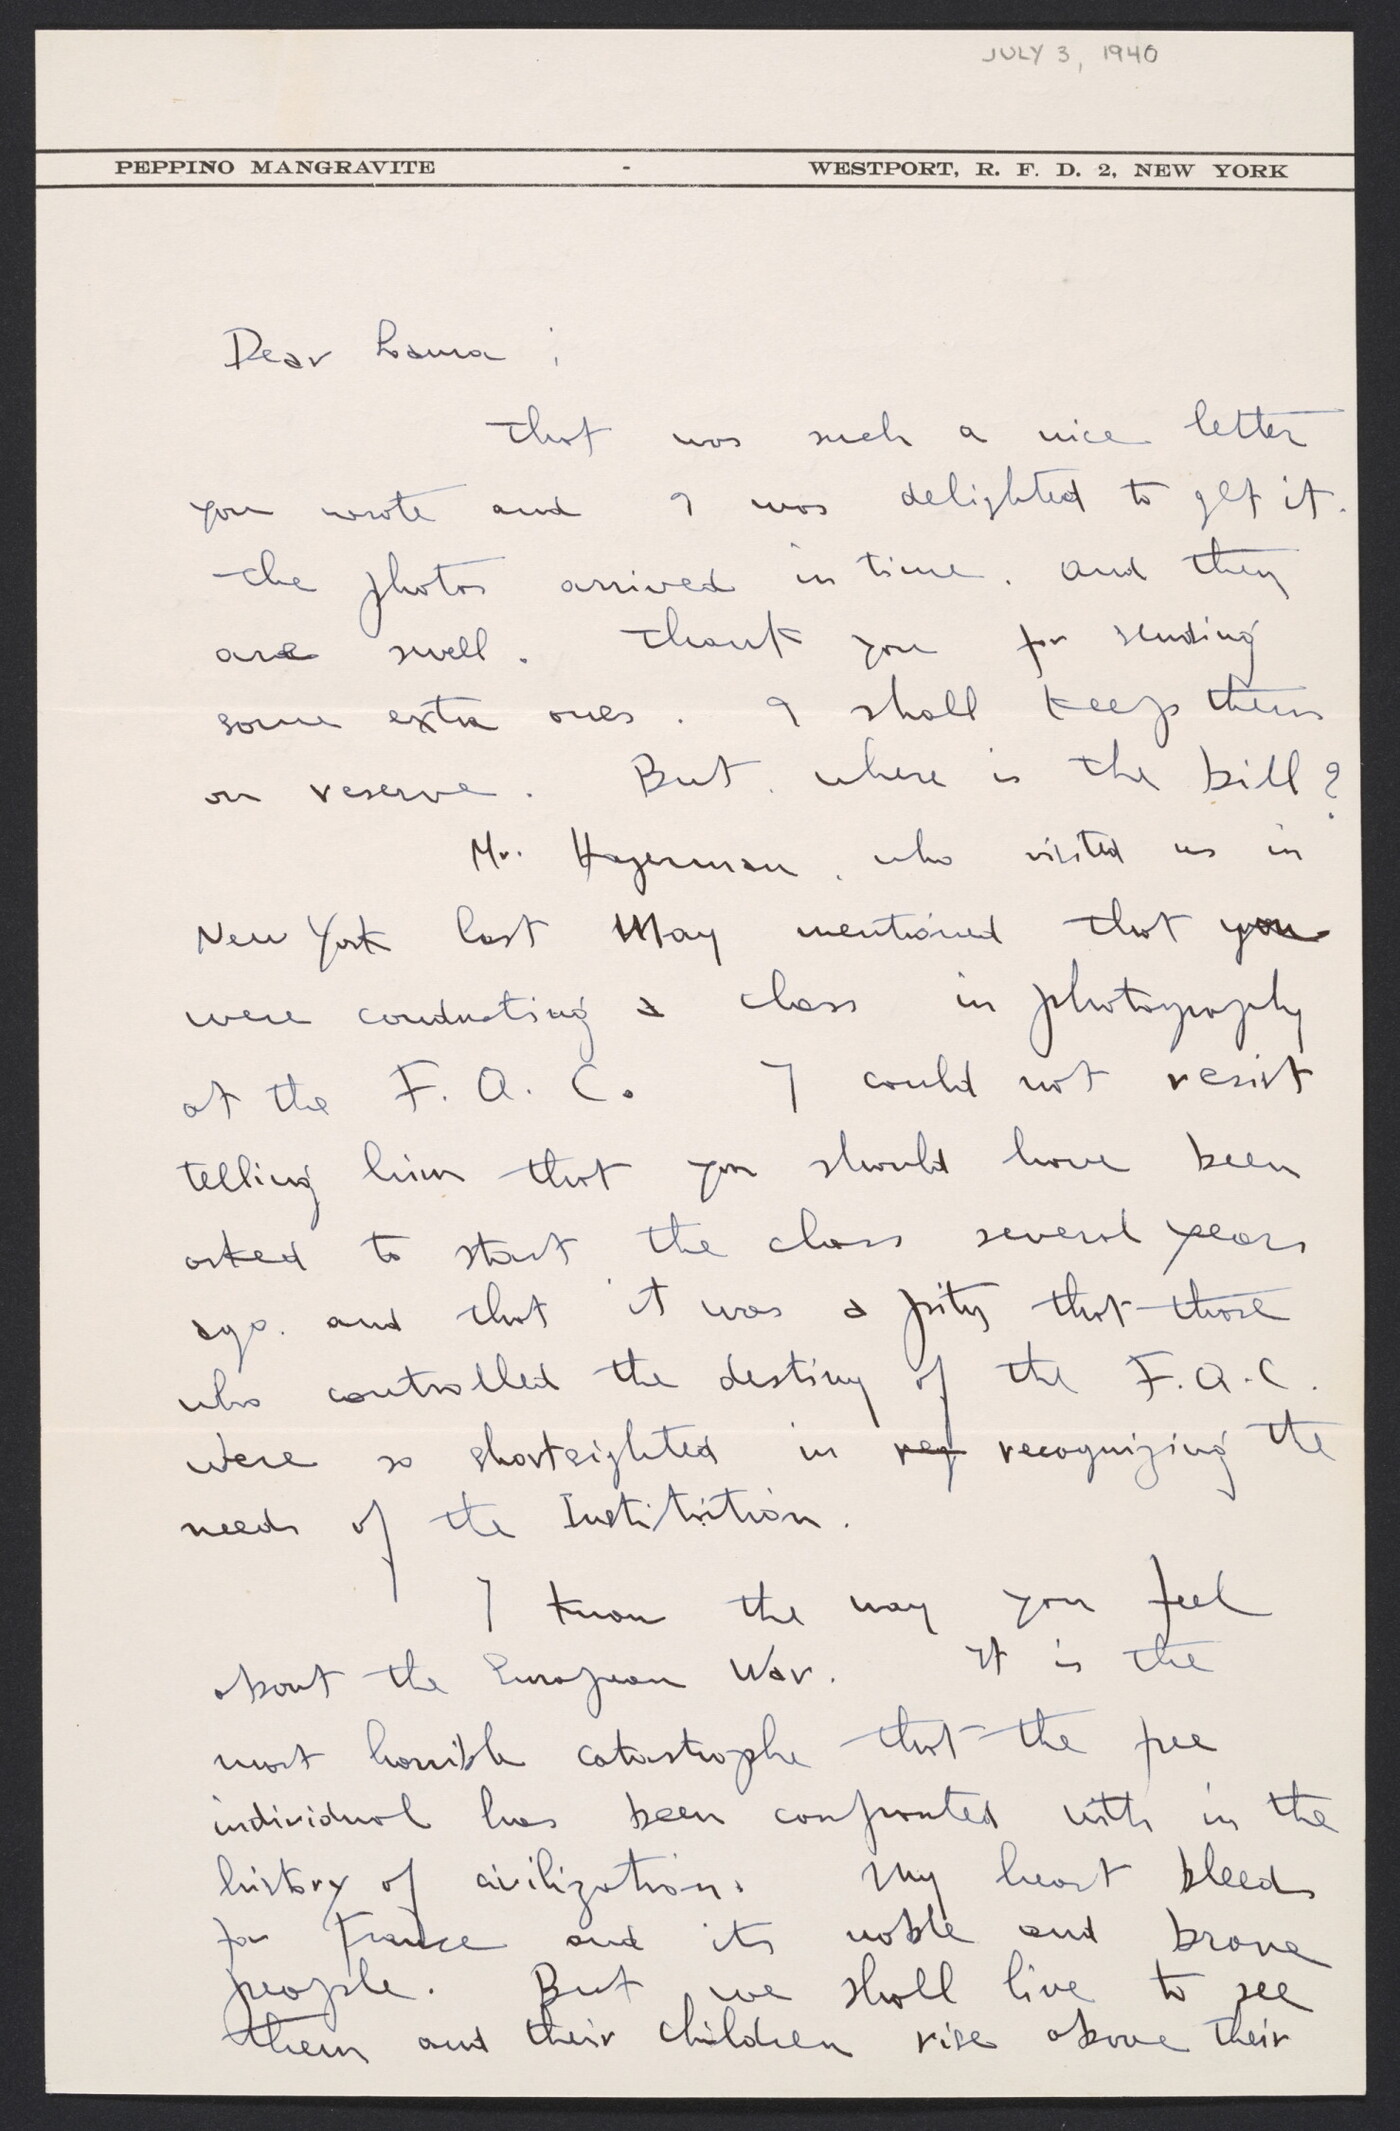 JULY 3, 1940
PEPPINO MANGRAVITE - WESTPORT, R. F. D. 2, NEW YORK
Dear Laura:
That was such a nice letter
you wrote and I was delighted to get it.
The photos arrived in time. and they
are swell. Thank you for sending
some extra ones. I shall keep them
on reserve. But, where is the bill?
Mr. Hagerman, who visited us in
New York last May mentioned that you
were conducting a class in photography
at the F. A. C. I could not resist
telling him that you should have been
asked to start the class several years
ago. and that it was a pity that those
who controlled the destiny of the F.A.C.
were so shortsighted in reg recognizing the
needs of the Institution.
I know the way you feel
about the European War. It is the
most horrible catastrophe that the free
individual has been confronted with in the
history of civilization. My heart bleeds
for France and its noble and brave
people. But we shall live to see
them and their children rise above their